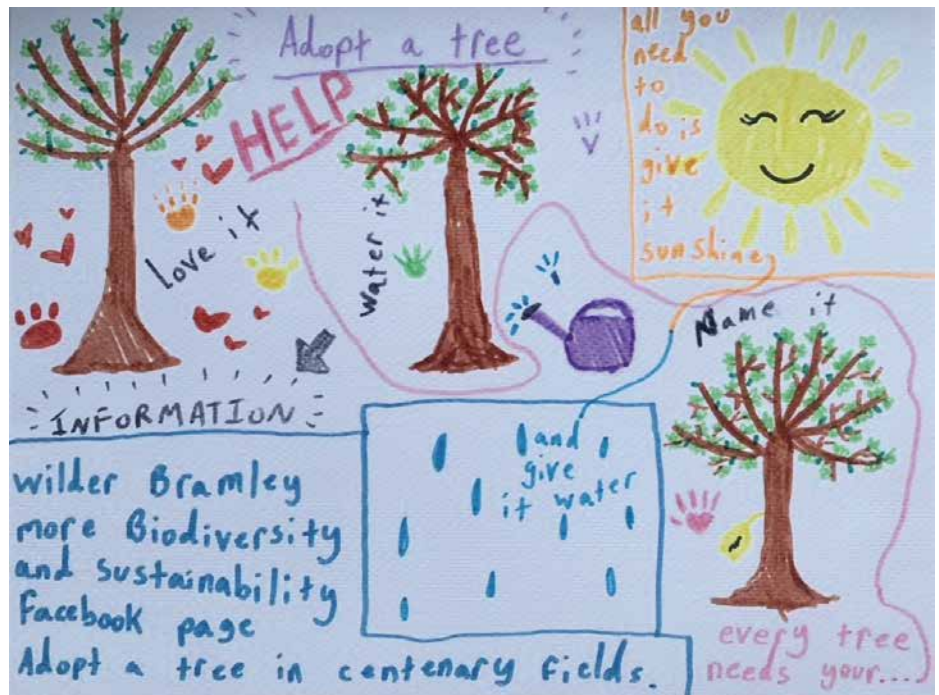 Adopt a tree
HELP
all you
need
to
do is
give
it
sunshine,
love it
Water it
Name it
INFORMATION
and
give
it water
Wilder Bramley
more Biodiversity
and sustainability
Facebook page
Adopt a tree in centenary fields.
every tree
needs your....